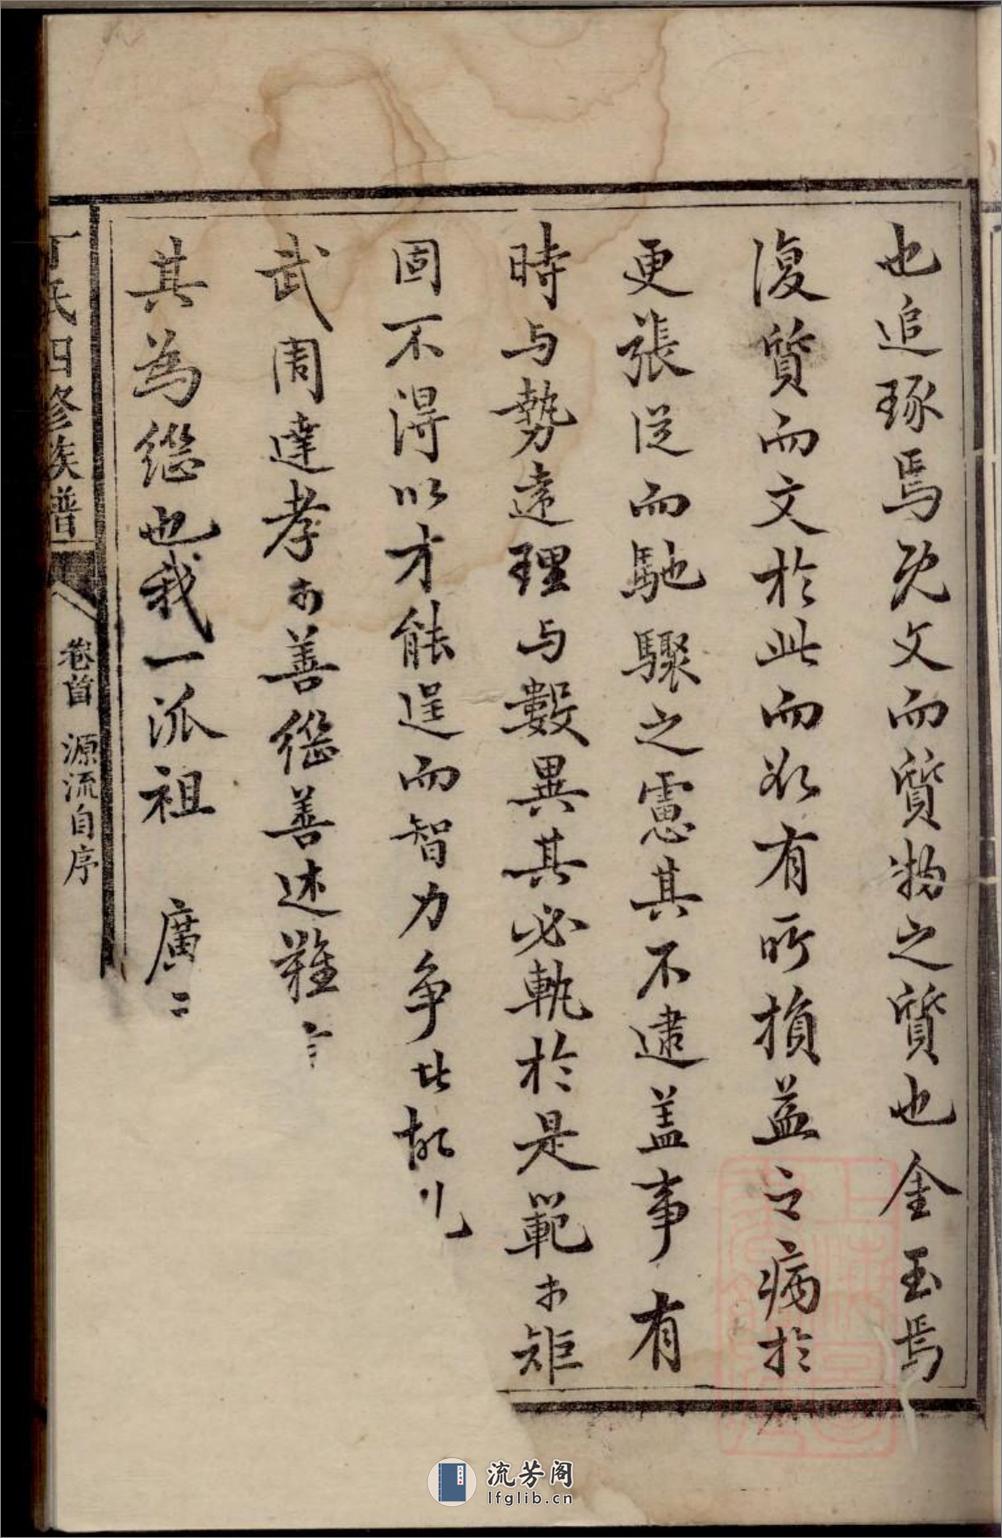 也追琢焉既文而質物之質也金玉焉
復質而文於此而欲有所損益之病於
更張從而馳驟之慮其不逮蓋事有
時与勢遠理与數異其必軌於是範於矩
固不得以才能逞而智力争此
武周達孝於善継善述難
其為継也我一派祖 廣
丁氏四修族譜
卷首 源流自序
流芳阁
lfglib.cn